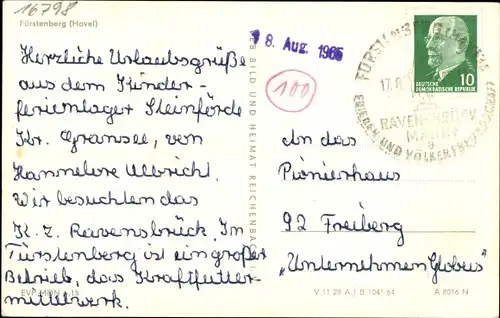 16798
Fürstenberg (Havel)
Herzliche Urlaubsgrüße
aus dem Kinder-
ferienlager Steinförde
Kr. Gransee, von
Hannelore Ulbricht.
Wir besuchten das
K. Z. Ravensbrück. In
Fürstenberg ist ein großer
Betrieb, das Kraftfutter-
mittelwerk.
BILD UND HEIMAT REICHENBACH
18. Aug. 1965
100
17.8.
RAVENSBRÜCK
MAHNT
FRIEDEN UND VÖLKER
DEUTSCHE
DEMOKRATISCHE REPUBLIK
10
An das
Pionierhaus
92 Freiberg
"Unternehmen Globus"
V 11 28 A 1 B 1041/64
A 8016 N